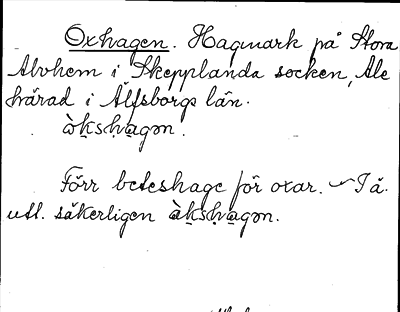 Oxhagen. Hagmark på Stora
Alvhem i Skepplanda socken, Ale
härad i Älfsborgs län.
àkshagən.
Förr beteshage för oxar. ~ I ä.
utl. säkerligen àkshagən.